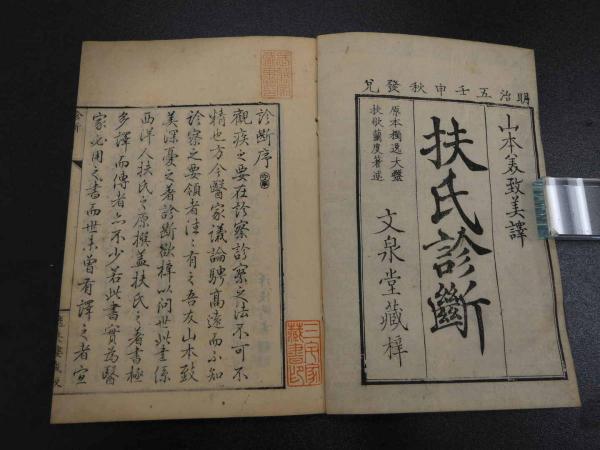 明治五壬申秋發兌
山本美致美譯
扶氏診斷
原本獨逸大醫
扶歇蘭度著述
文泉堂藏梓
診斷序
觀疾之要在診察診察之法不可不
精也方今醫家議論騁高遠而不知
診察之要領者往〻有之吾友山本致
美深憂之著診斷欲梓以問世此書係
西洋人扶氏之原撰蓋扶氏之著書極
多譯而傳者亦不少若此書實為醫
家必用之書而世未曾有譯之者宣
三宅家
藏書印